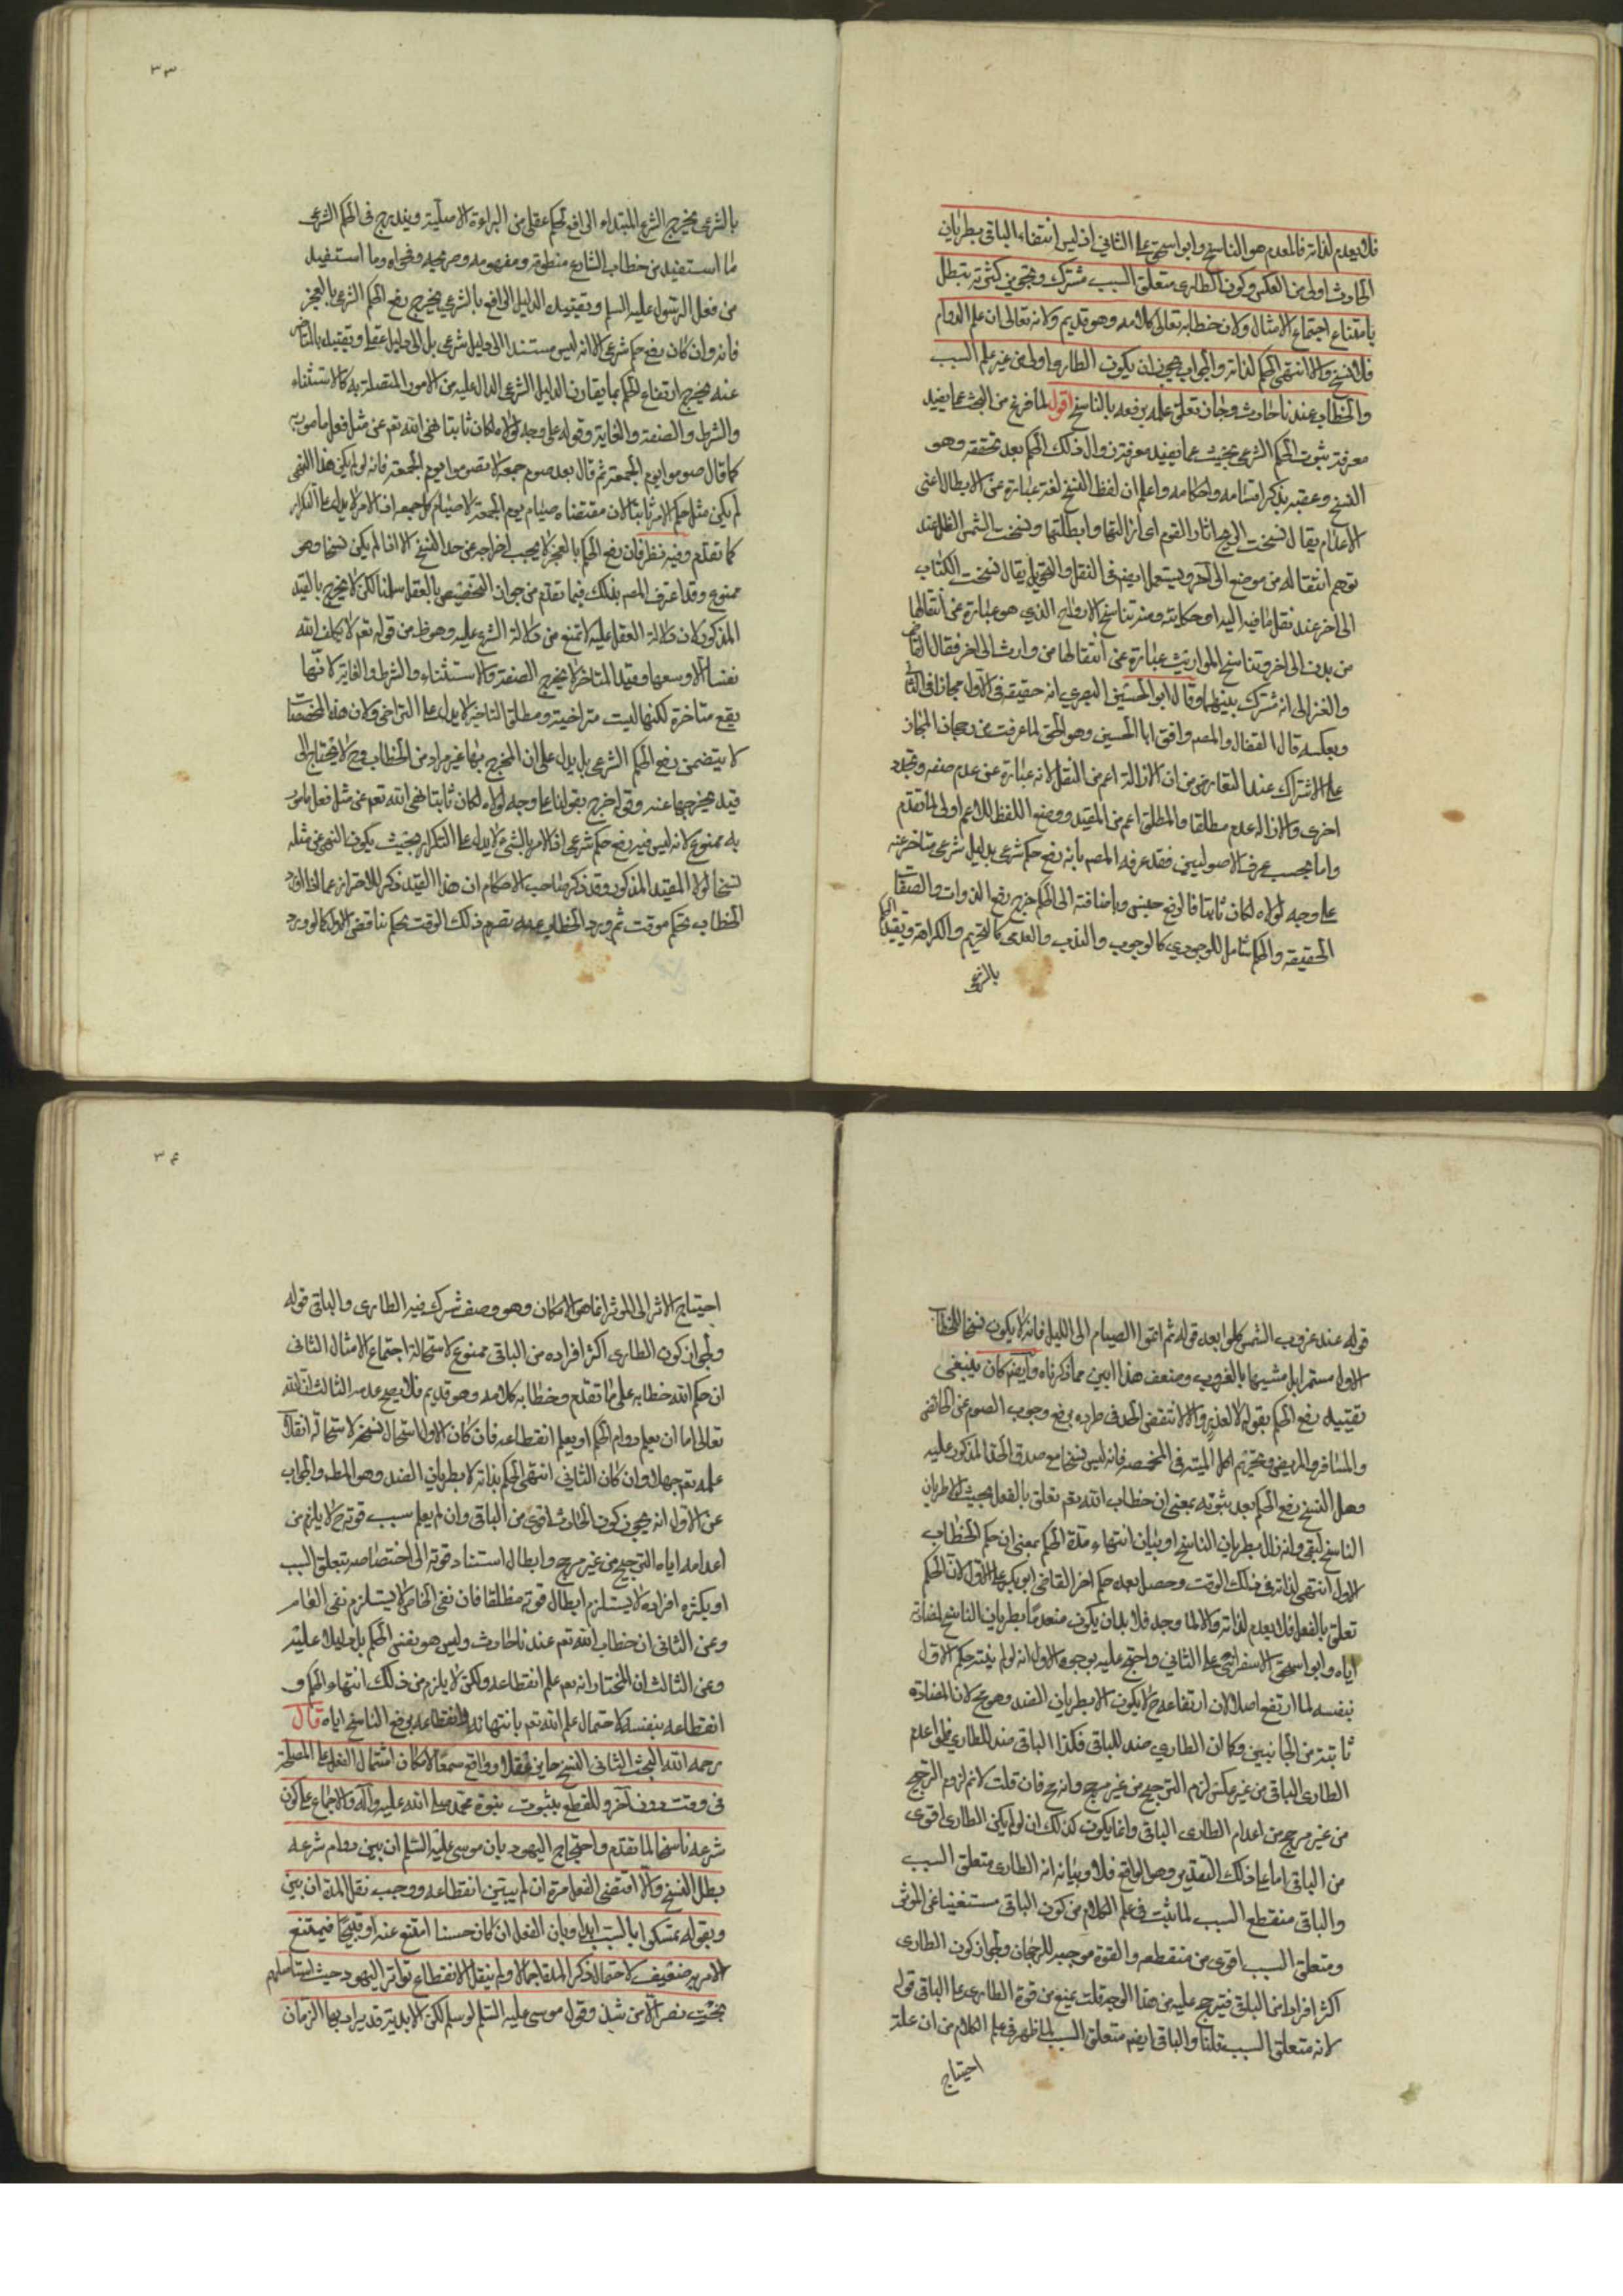 فلا يعدم لذاته فالمعدم هو الناسخ وابو اسحق على الثاني اذ ليس انتفاء الباقي بطريان
الحادث اولى من العكس وكون الطارى متعلق السبب مشترك وتجويز كثرته يبطل
بامتناع اجتماع الامثال ولان خطابه تعالى كلامه وهو قديم ولانه تعالى ان علم الدوام
فلا نسخ والا انتهى الحكم لذاته والجواب يجوز ان يكون الطارى اولى من غير علم السبب
والخطاب عندنا حادث وجاز تعلق علمه برفعه بالناسخ اقول لما فرغ من البحث عما يفيد
معرفة ثبوت الحكم الشرعى بحيث عما يفيد معرفة زوال ذلك الحكم بعد تحققه وهو
النسخ وعقبه بذكر اقسامه واحكامه واعلم ان لفظ النسخ لغة عبارة عن الابطال اعنى
الاعدام يقال نسخت الريح اثار القوم اى ازالتها وابطلتها ونسخت الشمس الظل عند
توهم انتقاله من موضع الى آخر ويستعمل ايضا فى النقل والتحويل يقال نسخت الكتاب
الى اخر عند نقل ما فيه اليه او حكايته ومنه تناسخ الارواح الذي هو عبارة عن انتقالها
من بدن الى اخر وتناسخ المواريث عبارة عن انتقالها من وارث الى اخر فقال القاضي
والغزالى انه مشترك بينهما وقال ابو الحسين البصري انه حقيقه فى الاول مجاز فى الثاني
وبعكسه قال القفال والمصم وافق ابا الحسين وهو الحق لما عرفت من رجحان المجاز
على الاشتراك عند التعارض من ان الازالة اعم من النقل لانه عبارة عن عدم صفه وتجدد
اخرى والازاله عدم مطلقا والمطلق اعم من المقيد ووضع اللفظ للاعم اولى لما تقدم
واما بحسب عرف الاصوليين فقد عرفه المصم بانه رفع حكم شرعى بدليل شرعى متاخر عنه
على وجه لولاه لكان ثابتا فالرفع جنس وباضافته الى الحكم خرج رفع الذوات والصفات
الحقيقه والحكم شامل للوجودي كالوجوب والندب والعدمى كالتحريم والكراهة وتقييد الحكم
بالشرعى
٣٣
بالشرعى يخرج الشرع المبتداء الرافع لحكم عقلى من البراءة الاصلية ويندرج فى الحكم الشرعى
ما استفيد من خطاب الشارع منطوقه ومفهومه وصريحه وفحواه وما استفيد
من فعل الرسول عليه السلم وبتقييد الدليل الرافع بالشرعى يخرج رفع الحكم الشرعى بالعجز
فانه وان كان رفع حكم شرعى الا انه ليس مستندا الى دليل شرعى بل الى دليل عقلى وبتقييده بالتاخر
عنه يخرج ارتفاع الحكم بما يقارن الدليل الشرعى الدال عليه من الامور المتصلة به كالاستثناء
والشرط والصفة والغاية وقوله على وجه لولاه لكان ثابتا نهى الله تعم عن مثل فعل مامور به
كما قال صوموا يوم الجمعة ثم قال بعد صوم جمعة لا تصوموا يوم الجمعة فانه لو لم يكن هذا النهى
لم يكن مثل حكم الامر ثابتا لان مقتضاه صيام يوم الجمعة لا صيام كل جمعه اذ الامر لا يدل على التكرار
كما تقدم وفيه نظر فان رفع الحكم بالعجز لا يجب اخراجه عن حد النسخ الا اذا لم يكن نسخا وهو
ممنوع وقد اعترف المصم بذلك فيما تقدم من جواز التخصيص بالعقل سلمنا لكن لا يخرج بالقيد
المذكور لان دلالة العقل عليه لا تمنع من دلالة الشرع عليه وهو ظ من قوله تعم لا يكلف الله
نفسا الا وسعها وقيد المتاخر لا يخرج الصفة والاستثناء والشرط والغاية لانها
يقع متاخرة لكنها ليست متراخية ومطلق التاخير لا يدل على التراخى ولان هذه المخصصات
لا يتضمن رفع الحكم الشرعى بل يدل على ان المخرج بها غير مراد من الخطاب وح لا يحتاج الى
قيد يخرجها عنه وقوله اخرج بقولنا على وجه لولاه لكان ثابتا نهى الله تعم عن مثل فعل مامور
به ممنوع لانه ليس فيه رفع حكم شرعى اذ الامر بالشئ لا يدل على التكرار بحيث يكون النهى عن مثله
نسخا لولا المقيد المذكور وقد ذكر صاحب الاحكام ان هذا القيد ذكر للاحتراز عما اذا ورد
الخطاب بحكم موقت ثم ورد الخطاب عند تصرم ذلك الوقت بحكم يناقض الاول كما لو ورد
قوله عند غروب الشمس كلوا بعد قوله ثم اتموا الصيام الى الليل فانه لا يكون نسخا للخطاب
الاول مستمرا بل مشبها بالغروب وضعف هذا ابين مما ذكرناه وايضا كان ينبغى
تقييد رفع الحكم بقوله لا لعذر والا لانتقض الحد فى طرده برفع وجوب الصوم عن الحائض
والمسافر والمريض وتحريم اكل الميته فى المخمصة فانه ليس نسخا مع صدق الحد المذكور عليه
وهل النسخ رفع الحكم بعد ثبوته بمعنى ان خطاب الله تعم تعلق بالفعل بحيث لولا طريان
الناسخ لبقى وانه زال بطريان الناسخ او بيان انتهاء مدة الحكم بمعنى ان حكم الخطاب
الاول انتهى لذاته فى ذلك الوقت وحصل بعده حكم اخر القاضى ابو بكر على الاول لان الحكم
تعلق بالفعل فلا يعدم لذاته والا لما وجد فلا بد ان يكون منعدما بطريان الناسخ لمضادته
اياه وابو اسحق الاسفراينى على الثاني واحتج عليه بوجوه الاول انه لو لم ينته حكم الاول
بنفسه لما ارتفع اصلا لان ارتفاعه ح لا يكون الا بطريان الضد وهو مح لان المضادة
ثابتة من الجانبين وكما ان الطاري ضد للباقى فكذا الباقى ضد للطاري فلو اعدم
الطارى الباقى من غير عكس لزم الترجيح من غير مرجح وانه مح فان قلت لا نم لزوم الترجيح
من غير مرجح من اعدام الطارى الباقى وانما يكون كذلك ان لو لم يكن الطارى اقوى
من الباقى اما على ذلك التقدير وهو الواقع فلا وبيانه ان الطارى متعلق السبب
والباقى منقطع السبب لما ثبت فى علم الكلام من كون الباقى مستغنيا عن الموثر
ومتعلق السبب اقوى من منقطعه والقوة موجبه للرجحان ولجواز كون الطارى
اكثر افرادا من الباقى فيترجح عليه من هذا الوجه قلت نمنع من قوة الطارى على الباقى قوله
لانه متعلق السبب قلنا والباقى ايضا متعلق السبب لما ظهر فى علم الكلام من ان علة
احتياج
٣٤
احتياج الاثر الى الموثر انما هو الامكان وهو وصف مشترك فيه الطارى والباقى قوله
ولجواز كون الطارى اكثر افراده من الباقى ممنوع لاستحالة اجتماع الامثال الثانى
ان حكم الله خطابه على ما تقدم وخطابه كلامه وهو قديم فلا يصح عدمه الثالث ان الله
تعالى اما ان يعلم دوام الحكم او يعلم انقطاعه فان كان الاول استحال نسخه لاستحالة انقلاب
علمه تعم جهلا وان كان الثاني انتهى الحكم بذاته لا بطريان الضد وهو المط والجواب
عن الاول انه يجوز كون الحادث اقوى من الباقى وان لم يعلم سبب قوته ح لا يلزم من
اعدامه اياه الترجيح من غير مرجح وابطال استناد قوته الى اختصاصه بتعلق السبب
او بكثرة افراده لا يستلزم ابطال قوته مطلقا فان نفى الخاص لا يستلزم نفى العام
وعن الثانى ان خطاب الله تعم عندنا حادث وليس هو نفس الحكم بل دليلا عليه
وعن الثالث ان المختار انه تعم علم انقطاعه ولكن لا يلزم من ذلك انتهاء الحكم و
انقطاعه بنفسه لاحتمال علم الله تعم بانتهائه وانقطاعه برفع الناسخ اياه قال
رحمه الله البحث الثانى النسخ جايز عقلا وواقع سمعا لامكان اشتمال الفعل على المصلحة
فى وقت دون آخر وللقطع بثبوت نبوة محمد صلى الله عليه وآله والاجماع على كون
شرعه ناسخا لما تقدم واحتجاج اليهود بان موسى عليه السلم ان بين دوام شرعه
بطل النسخ والا اقتضى الفعل مرة ان لم يبين انقطاعه ووجب نقل المدة ان بين
وبقوله تمسكوا بالسبت ابدا وبان الفعل ان كان حسنا امتنع عنه او قبيحا فيمتنع
الامر به ضعيف لاحتمال ذكر المدة اجمالا ولم ينقل لانقطاع تواتر اليهود حيث استاصلهم
بخت نصر الا من شذ وقول موسى عليه السلم لو سلم لكن الابدية قد يراد بها الزمان